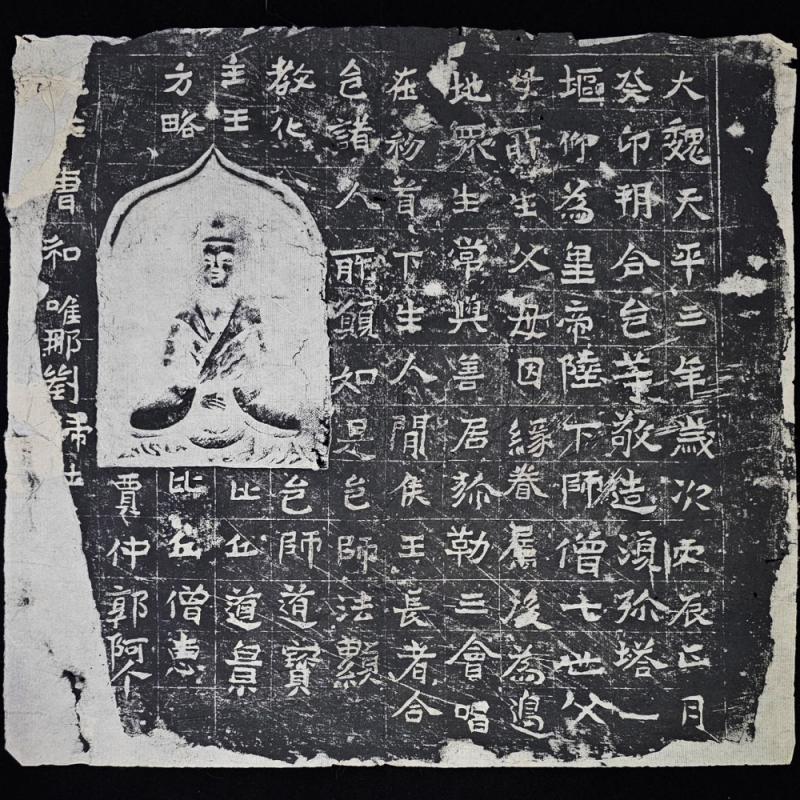 大魏天平三年歲次丙辰正月
癸卯朔合邑等敬造湏弥塔一
塸仰為皇帝陛下師僧七世父
母所生父母因緣眷屬後為邊
地眾生常與善居弥勒三會唱
在初首下生人間侯王長者合
邑諸人所願如是邑師法顯
教化邑師道寶
主王比丘道景
方略比丘僧惠
賈仲郭阿
曹和唯那劉歸